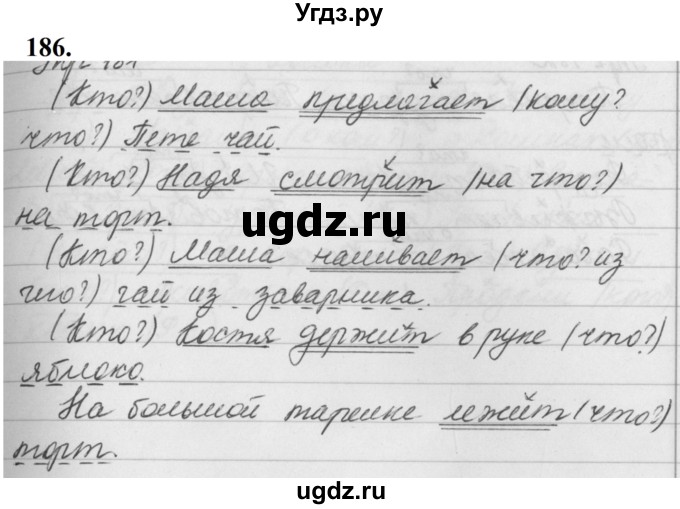 Угдз.ру
186.
Упр 181
(Кто?) Маша предлагает (кому?
что?) Пете чай.
(Кто?) Надя смотрит (на что?)
на торт.
ugdz.ru
(Кто?) Маша наливает (что? из
чего?) чай из заварника.
(Кто?) Костя держит в руке (что?)
яблоко.
На большой тарелке лежит (что?)
торт.
ugdz.ru